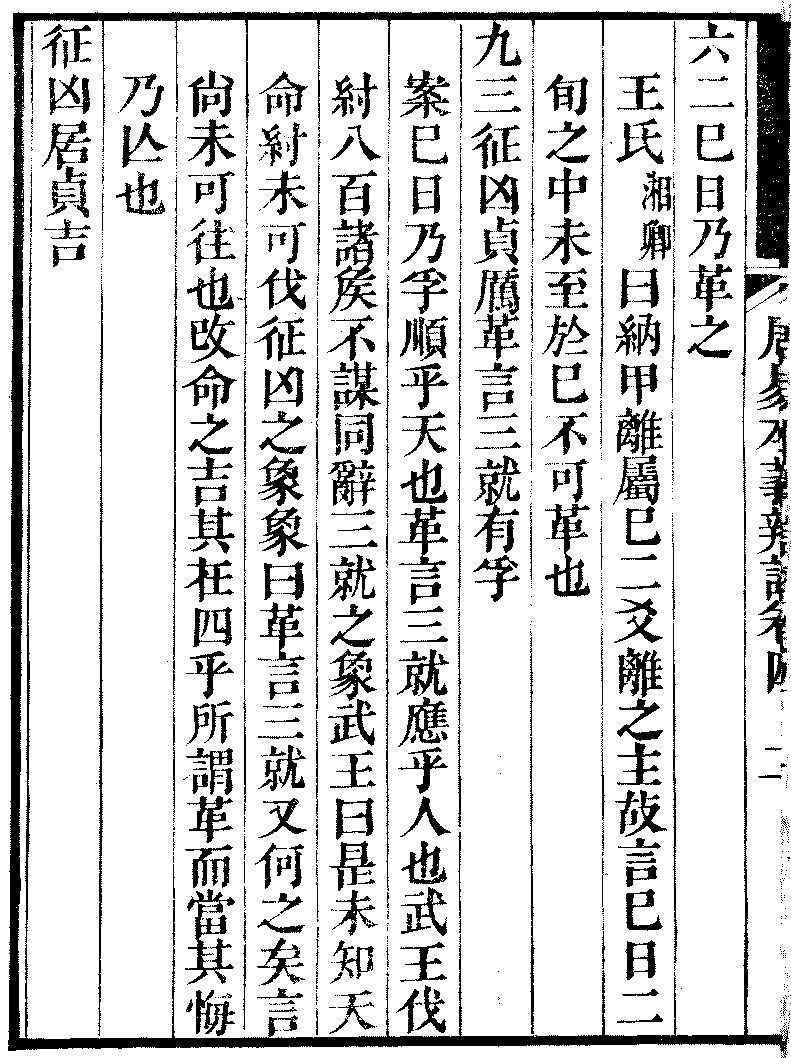 六二巳日乃革之
王氏湘卿曰納甲離屬巳二爻離之主故言巳日二
旬之中未至於巳不可革也
九三征凶貞厲革言三就有孚
案巳日乃孚順乎天也革言三就應乎人也武王伐
紂八百諸矦不謀同辭三就之象武王曰是未知天
命紂未可伐征凶之象象曰革言三就又何之矣言
尚未可往也改命之吉其在四乎所謂革而當其悔
乃亾也
征凶居貞吉